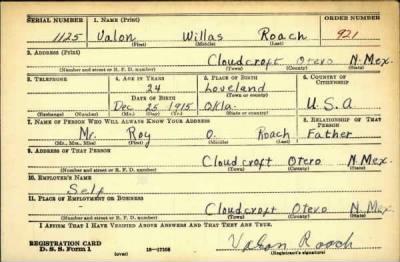 SERIAL NUMBER 1. NAME (Print) ORDER NUMBER
1125 Valon Willas Roach 921
(First) (Middle) (Last)
2. ADDRESS (Print)
Cloudcroft Otero N. Mex.
(Number and street or R. F. D. number) (Town) (County) (State)
3. TELEPHONE 4. AGE IN YEARS 5. PLACE OF BIRTH 6. COUNTRY OF CITIZENSHIP
24 Loveland
DATE OF BIRTH (Town or county)
Dec 25 1915 Okla. U.S.A
(Exchange) (Number) (Mo.) (Day) (Yr.) (State or country)
7. NAME OF PERSON WHO WILL ALWAYS KNOW YOUR ADDRESS 8. RELATIONSHIP OF THAT PERSON
Mr. Roy O. Roach Father
(Mr., Mrs., Miss) (First) (Middle) (Last)
9. ADDRESS OF THAT PERSON
Cloudcroft Otero N. Mex.
(Number and street or R. F. D. number) (Town) (County) (State)
10. EMPLOYER'S NAME
Self
11. PLACE OF EMPLOYMENT OR BUSINESS
Cloudcroft Otero N. Mex.
(Number and street or R. F. D. number) (Town) (County) (State)
I AFFIRM THAT I HAVE VERIFIED ABOVE ANSWERS AND THAT THEY ARE TRUE.
REGISTRATION CARD
D. S. S. Form 1 (over) 16—17105 Valon Roach
(Registrant's signature)